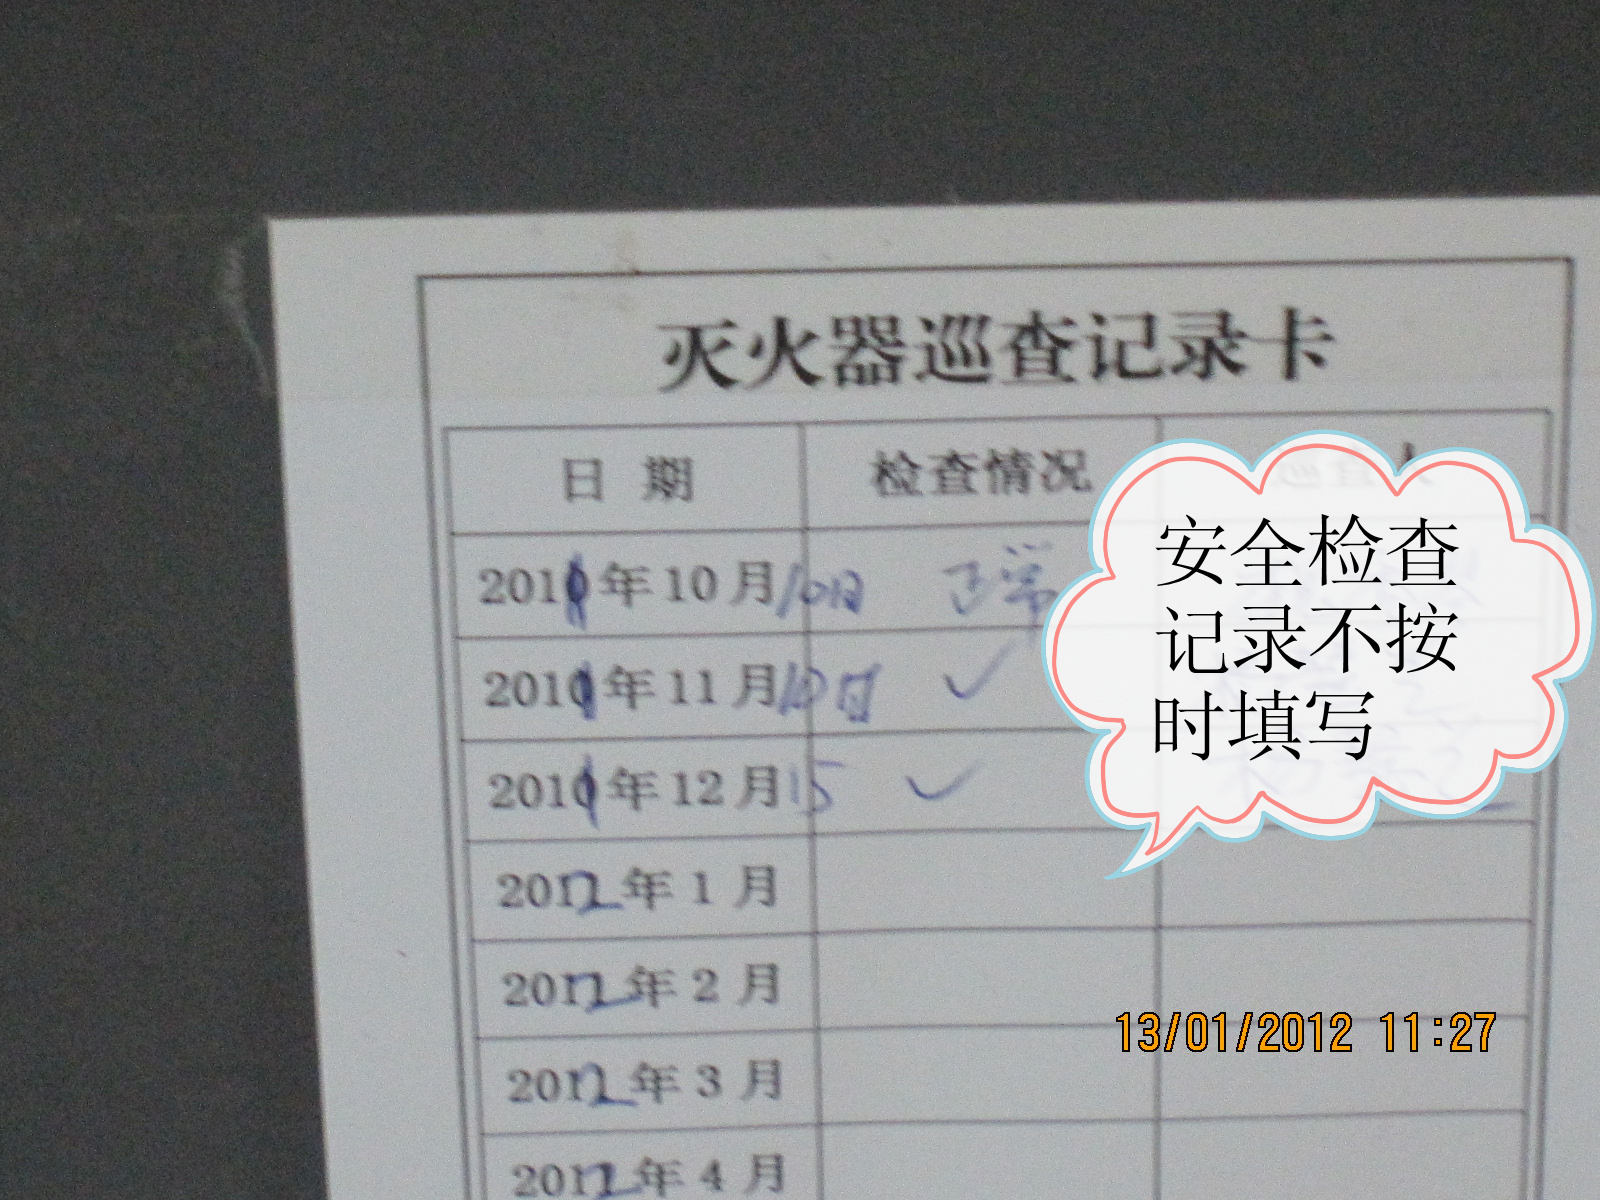 灭火器巡查记录卡
日 期 检查情况 巡查人
2011年10月10日 正常
2011年11月10日 ✓
2011年12月15 ✓
2012年1月
2012年2月
2012年3月
2012年4月
安全检查
记录不按
时填写
13/01/2012 11:27